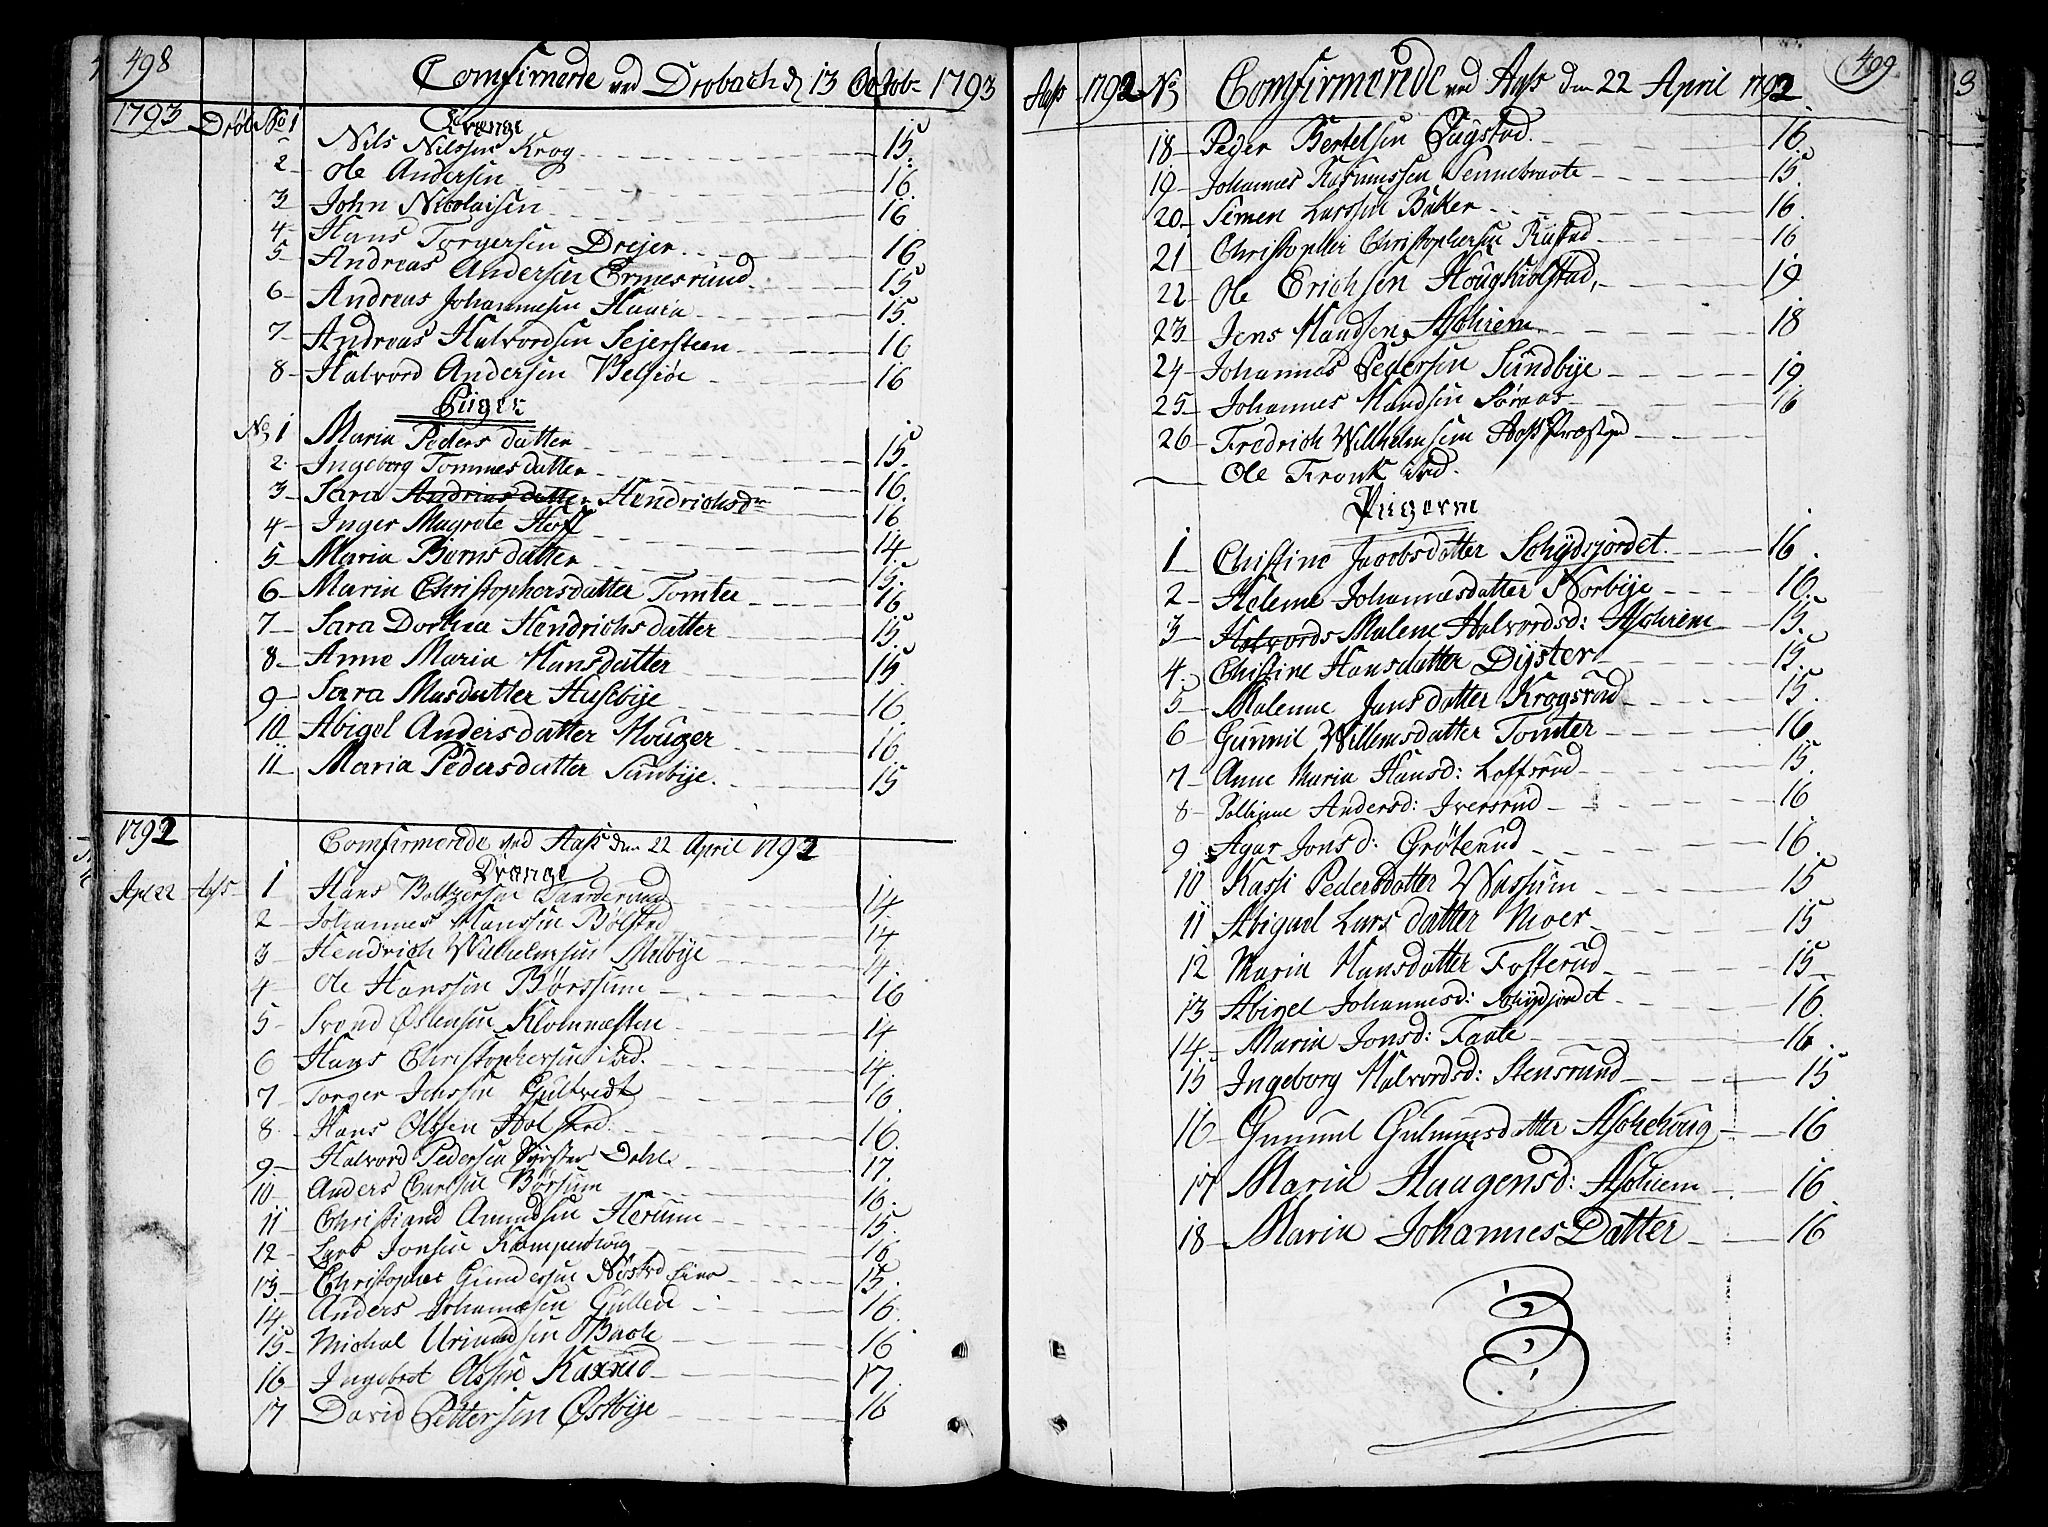 498
Comfirmerde ved Drøbach d 13 Octob- 1793
1793 Drøb No 1
Drænge
Nils Nilssen Krog 15
2 Ole Andersen 16
3 John Nicolaisen 16
4 Hans Torgersen Drejer 16
5 Andreas Andersen Ermesrund 15
6 Andreas Johannesen Haaia 15
7 Andreas Halvordsen Sejersteen 16
8 Halvord Andersen Belsiøe 16
Piiger
No 1 Maria Peders datter 15
2 Ingeborg Tommes datter 16
3 Sara Andrias datter Hendrichsdr 16
4 Inger Magrete Hoff 14
5 Maria Børns datter 15
6 Maria Christophersdatter Tomter 16
7 Sara Dorthea Hendrichs datter 15
8 Anne Maria Hansdatter 15
9 Sara Masdatter Husebye 16
10 Abigel Anders datter Houger 16
11 Maria Peders datter Sundbye 15
1792
Comfirmerede ved Aass den 22 April 1792
Drænge
Apl 22 Aas 1 Hans Boltzersen Taanderuud 14
2 Johannes Hanssen Bølstad 14
3 Hendrich Willhelmsen Melbye 14
4 Ole Hanssen Børssum 16
5 Svend Østensen Klommesten 14
6 Hans Christophersen ibd. 14
7 Torger Jenssen Gultvedt 16
8 Hans Olssen Holstad 16
9 Halvord Pedersen Dyster Dahle 17
10 Anders Carlsen Børsum 16
11 Christiand Amundsen Herumm 15
12 Lars Jonsen Kamperhoug 16
13 Christopher Gundersen Nøstvd Eiee 15
14 Anders Johannesen Gullen 16
15 Michal Urimmdsen Bach 16
16 Ingebret Olssen Kaxrud 17
17 David Pettersen Østbye 16
499
Aass 1792 No Comfirmerede ved Aass den 22 April 1792
18 Peder Bertelsen Pugstad 16
19 Johannes Rasmussen Sennebraate 15
20 Simen Larssen Baker 16
21 Christopher Christophersen Rustad 16
22 Ole Erichsen Hougskiolstad 19
23 Jens Handsen Aschiem 18
24 Johannes Pedersen Sundbye 19
25 Johannes Handsen Søraas 16
26 Fredrich Willhelmsen Aass Præstgrd
Ole Fronk ibd.
Piigerne
1 Christine Jacobsdatter Schydsjordet 16
2 Helene Johannesdatter Norbye 16
3 Halvords Malene Halvordsd: Aschiem 15
4 Christine Hansdatter Dyster 15
5 Malenne Jansdatter Krogsrud 15
6 Gunnil Willemsdatter Tomter 16
7 Anne Maria Hansd: Loffsrud 15
8 Polline Andersd: Iversrud 16
9 Agar Jonsd: Grøterud 16
10 Kassi Pedersdatter Wassum 15
11 Abigael Lars datter Moer 15
12 Maria Hansdatter Fosterud 15
13 Abigel Johannesd: Schydjordet 16
14 Maria Jonsd: Faale 16
15 Ingeborg Halvordsd: Stensrund 15
16 Gunnul Gulmunsdatter Aschehoug 16
17 Maria Haagensd: Aschiem 16
18 Maria Johannes Datter 16